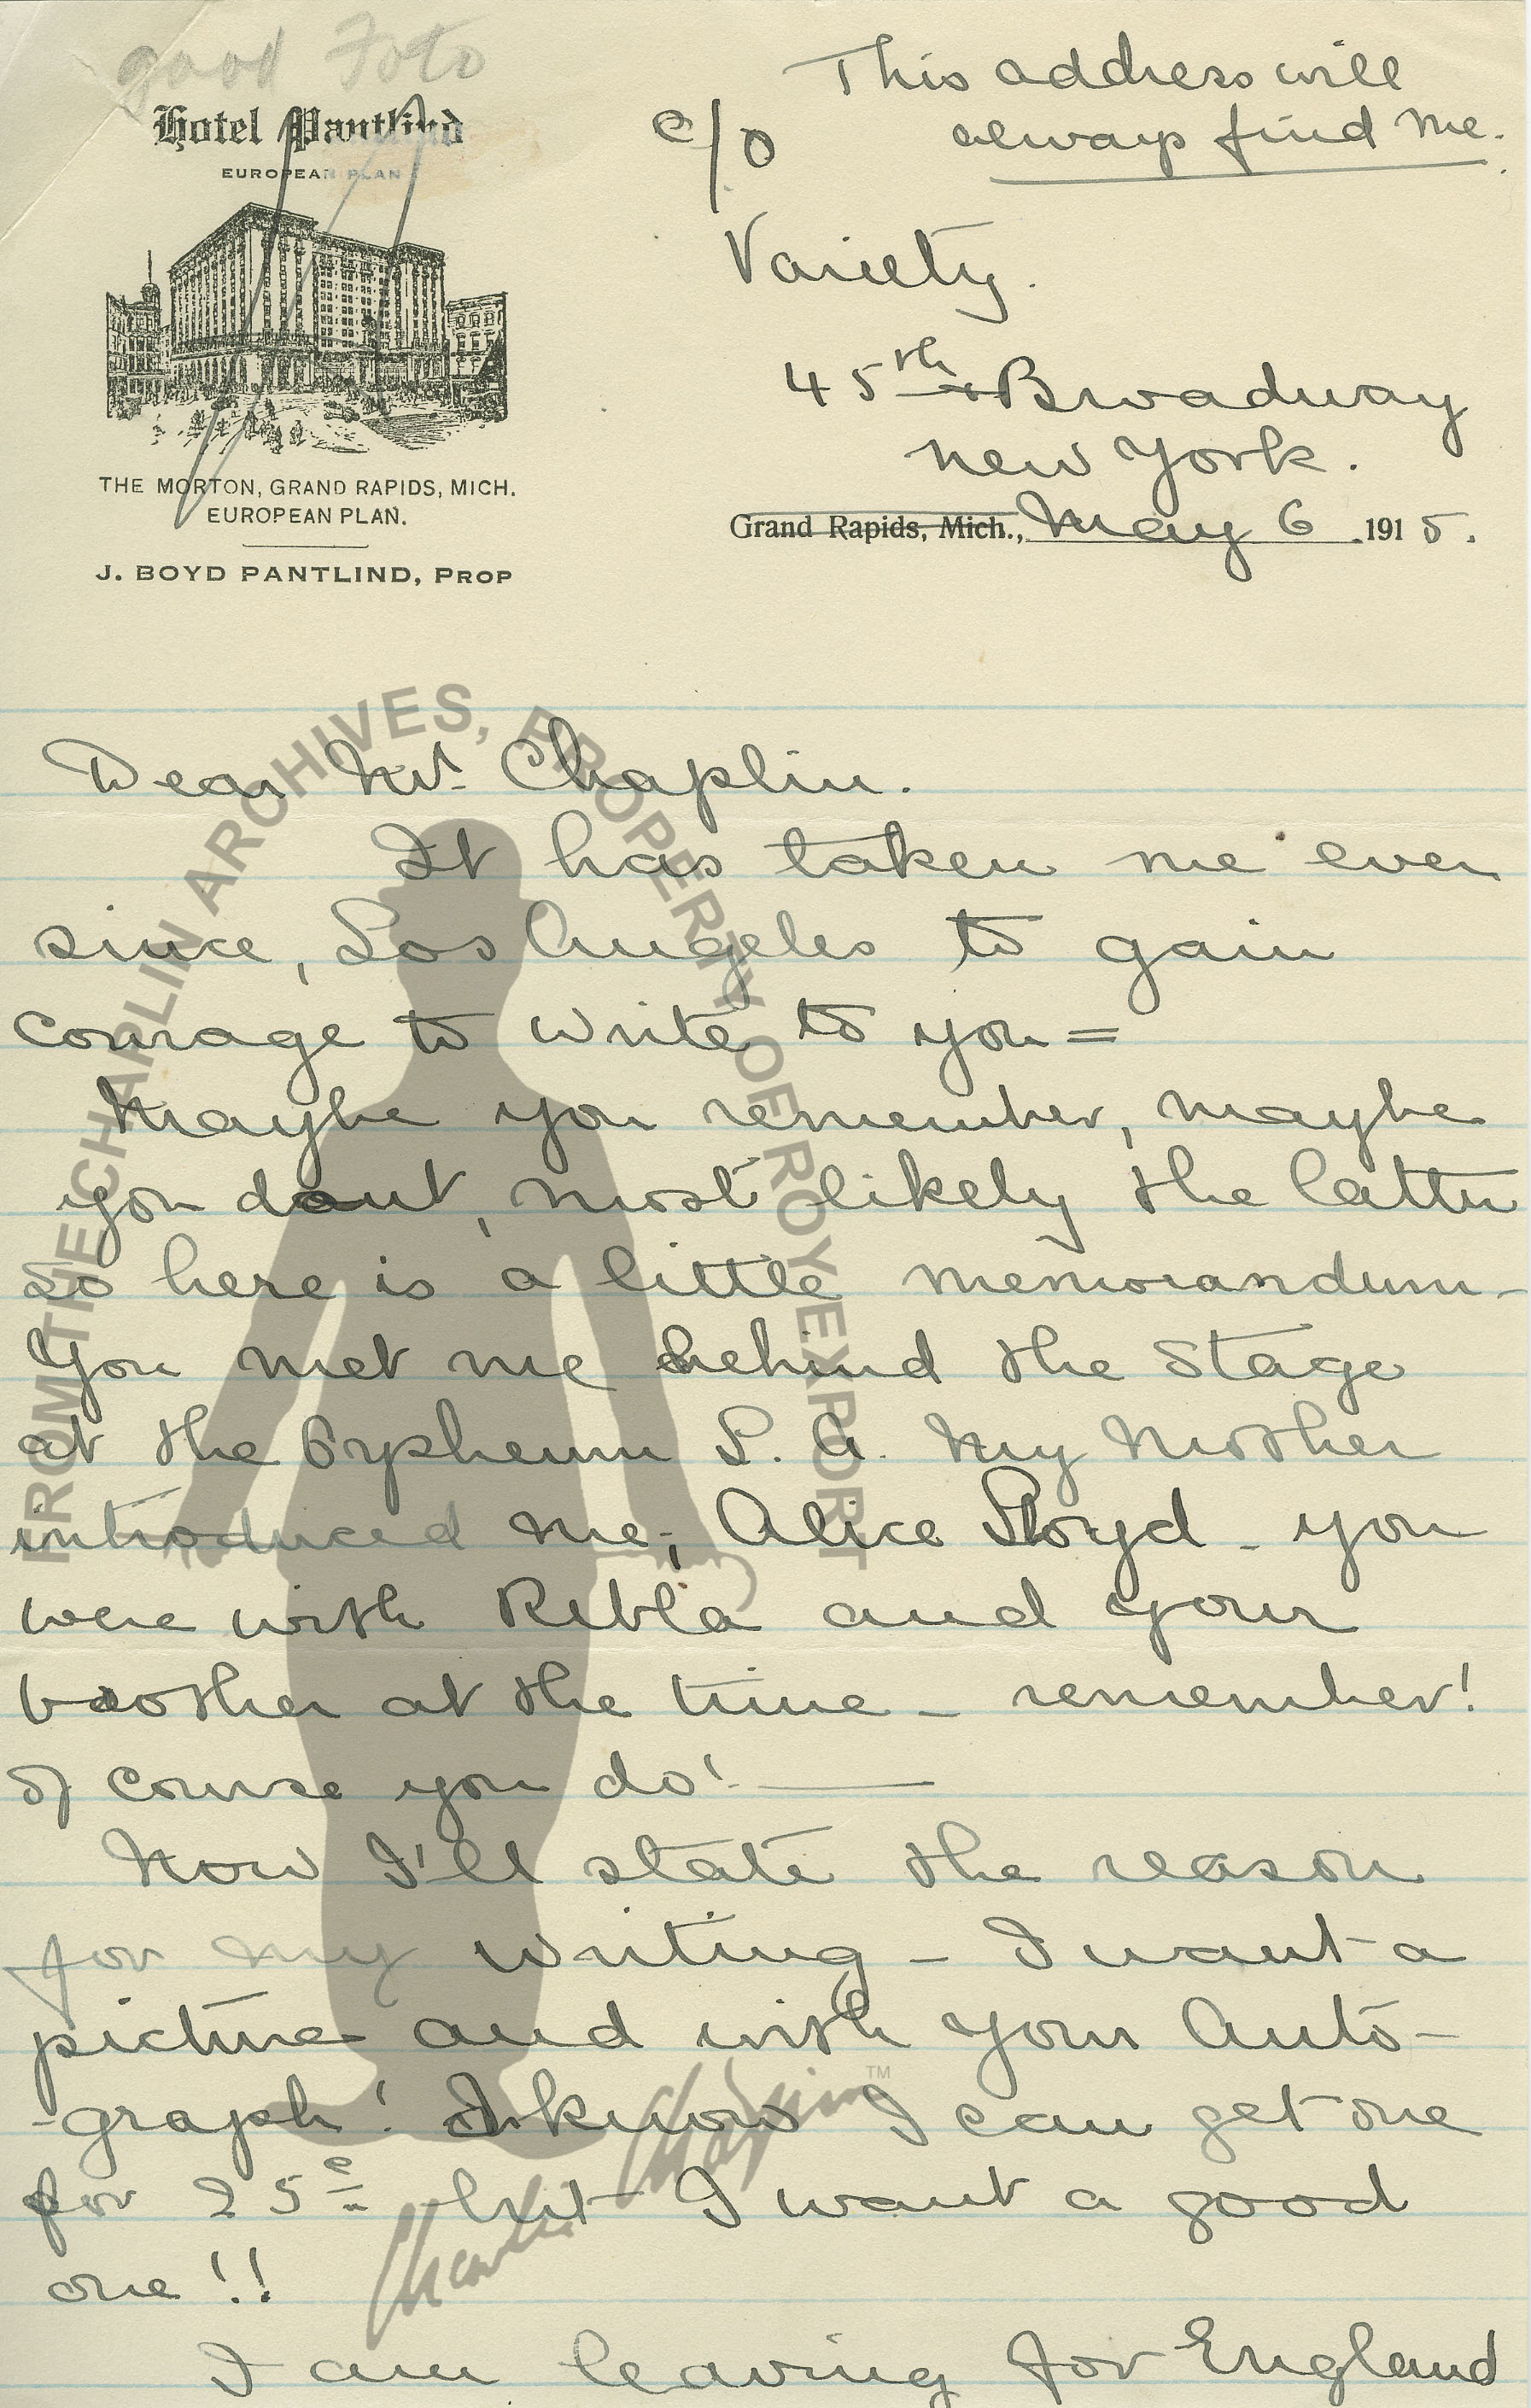 good Foto
Hotel Pantlind
EUROPEAN PLAN
THE MORTON, GRAND RAPIDS, MICH.
EUROPEAN PLAN.
J. BOYD PANTLIND, PROP
This address will
always find me.
c/o
Variety.
45th & Broadway
New York.
Grand Rapids, Mich., May 6 1915.
Dear Mr. Chaplin.
It has taken me ever
since, Los Angeles to gain
courage to write to you =
Maybe you remember, maybe
you dont, most likely the latter
So here is a little memorandum -
You met me behind the stage
at the Orpheum L. A. My Mother
introduced me; Alice Lloyd - you
were with Ribla and your
brother at the time - remember!
of course you do!
Now I'll state the reason
for my writing - I want a
picture and with your Auto-
-graph! I know I can get one
for 25c but I want a good
one!!
I am leaving for England
FROM THE CHAPLIN ARCHIVES, PROPERTY OF ROY EXPORT
Charlie Chaplin™